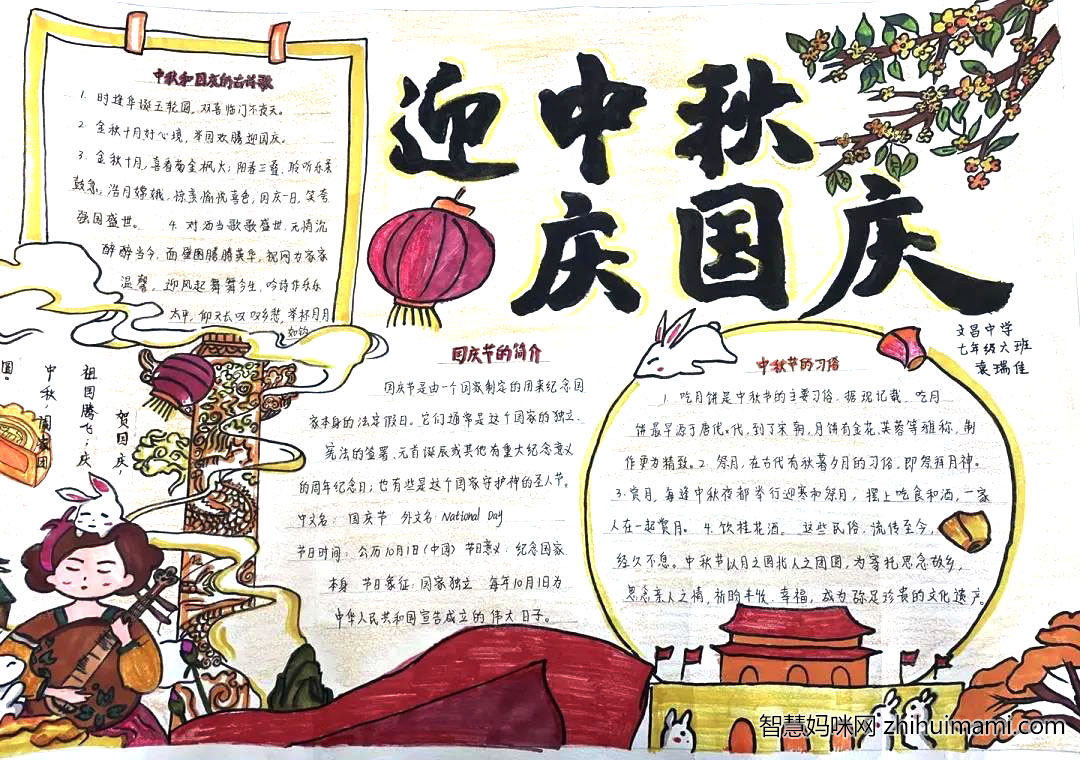 迎中秋
庆国庆
中秋和国庆的古诗歌
1. 时逢华诞五轮圆,双喜临门不夜天。
2. 金秋十月好心境,举国欢腾迎国庆。
3. 金秋十月,喜看菊金枫火;阳春三叠,聆听乐来
鼓急。浩月嫦娥,惊羡愉悦喜色,国庆一日,笑
强国盛世。 4. 对酒当歌歌盛世,元情沉
醉醉当今,面
温馨, 迎风起舞舞今生,吟诗作乐乐
太平,仰天长叹叹
国庆节的简介
国庆节是由一个国家制定的用来纪念国
家本身的法定假日。它们通常是这个国家的独立、
宪法的签署、元首诞辰或其他有重大纪念意义
的周年纪念日;也有些是这个国家守护神的圣人节。
中文名: 国庆节 外文名: National Day
节日时间: 公历10月1日(中国) 节日意义: 纪念国家
本身 节日象征: 国家独立 每年10月1日为
中华人民共和国宣告成立的伟大日子。
中秋节的习俗
1. 吃月饼是中秋节的主要习俗。据现记载、吃月
饼最早源于唐代,到了宋朝,月饼有金花、芙蓉等雅称,制
作更为精致。2. 祭月,在古代有秋暮夕月的习俗,即祭拜月神。
3. 赏月,每逢中秋夜都举行迎寒和祭月, 摆上吃食和酒,一家
人在一起赏月。 4. 饮桂花酒。 这些民俗,流传至今,
经久不息。中秋节以月之圆兆人之团圆,为寄托思念故乡,
思念亲人之情,祈盼丰收、幸福,成为弥足珍贵的文化遗产。
文昌中学
七年级六班
袁瑞佳
贺国庆,
祖国腾飞;庆
中秋,阖家团
圆。
智慧妈咪网 zhihuimami.com